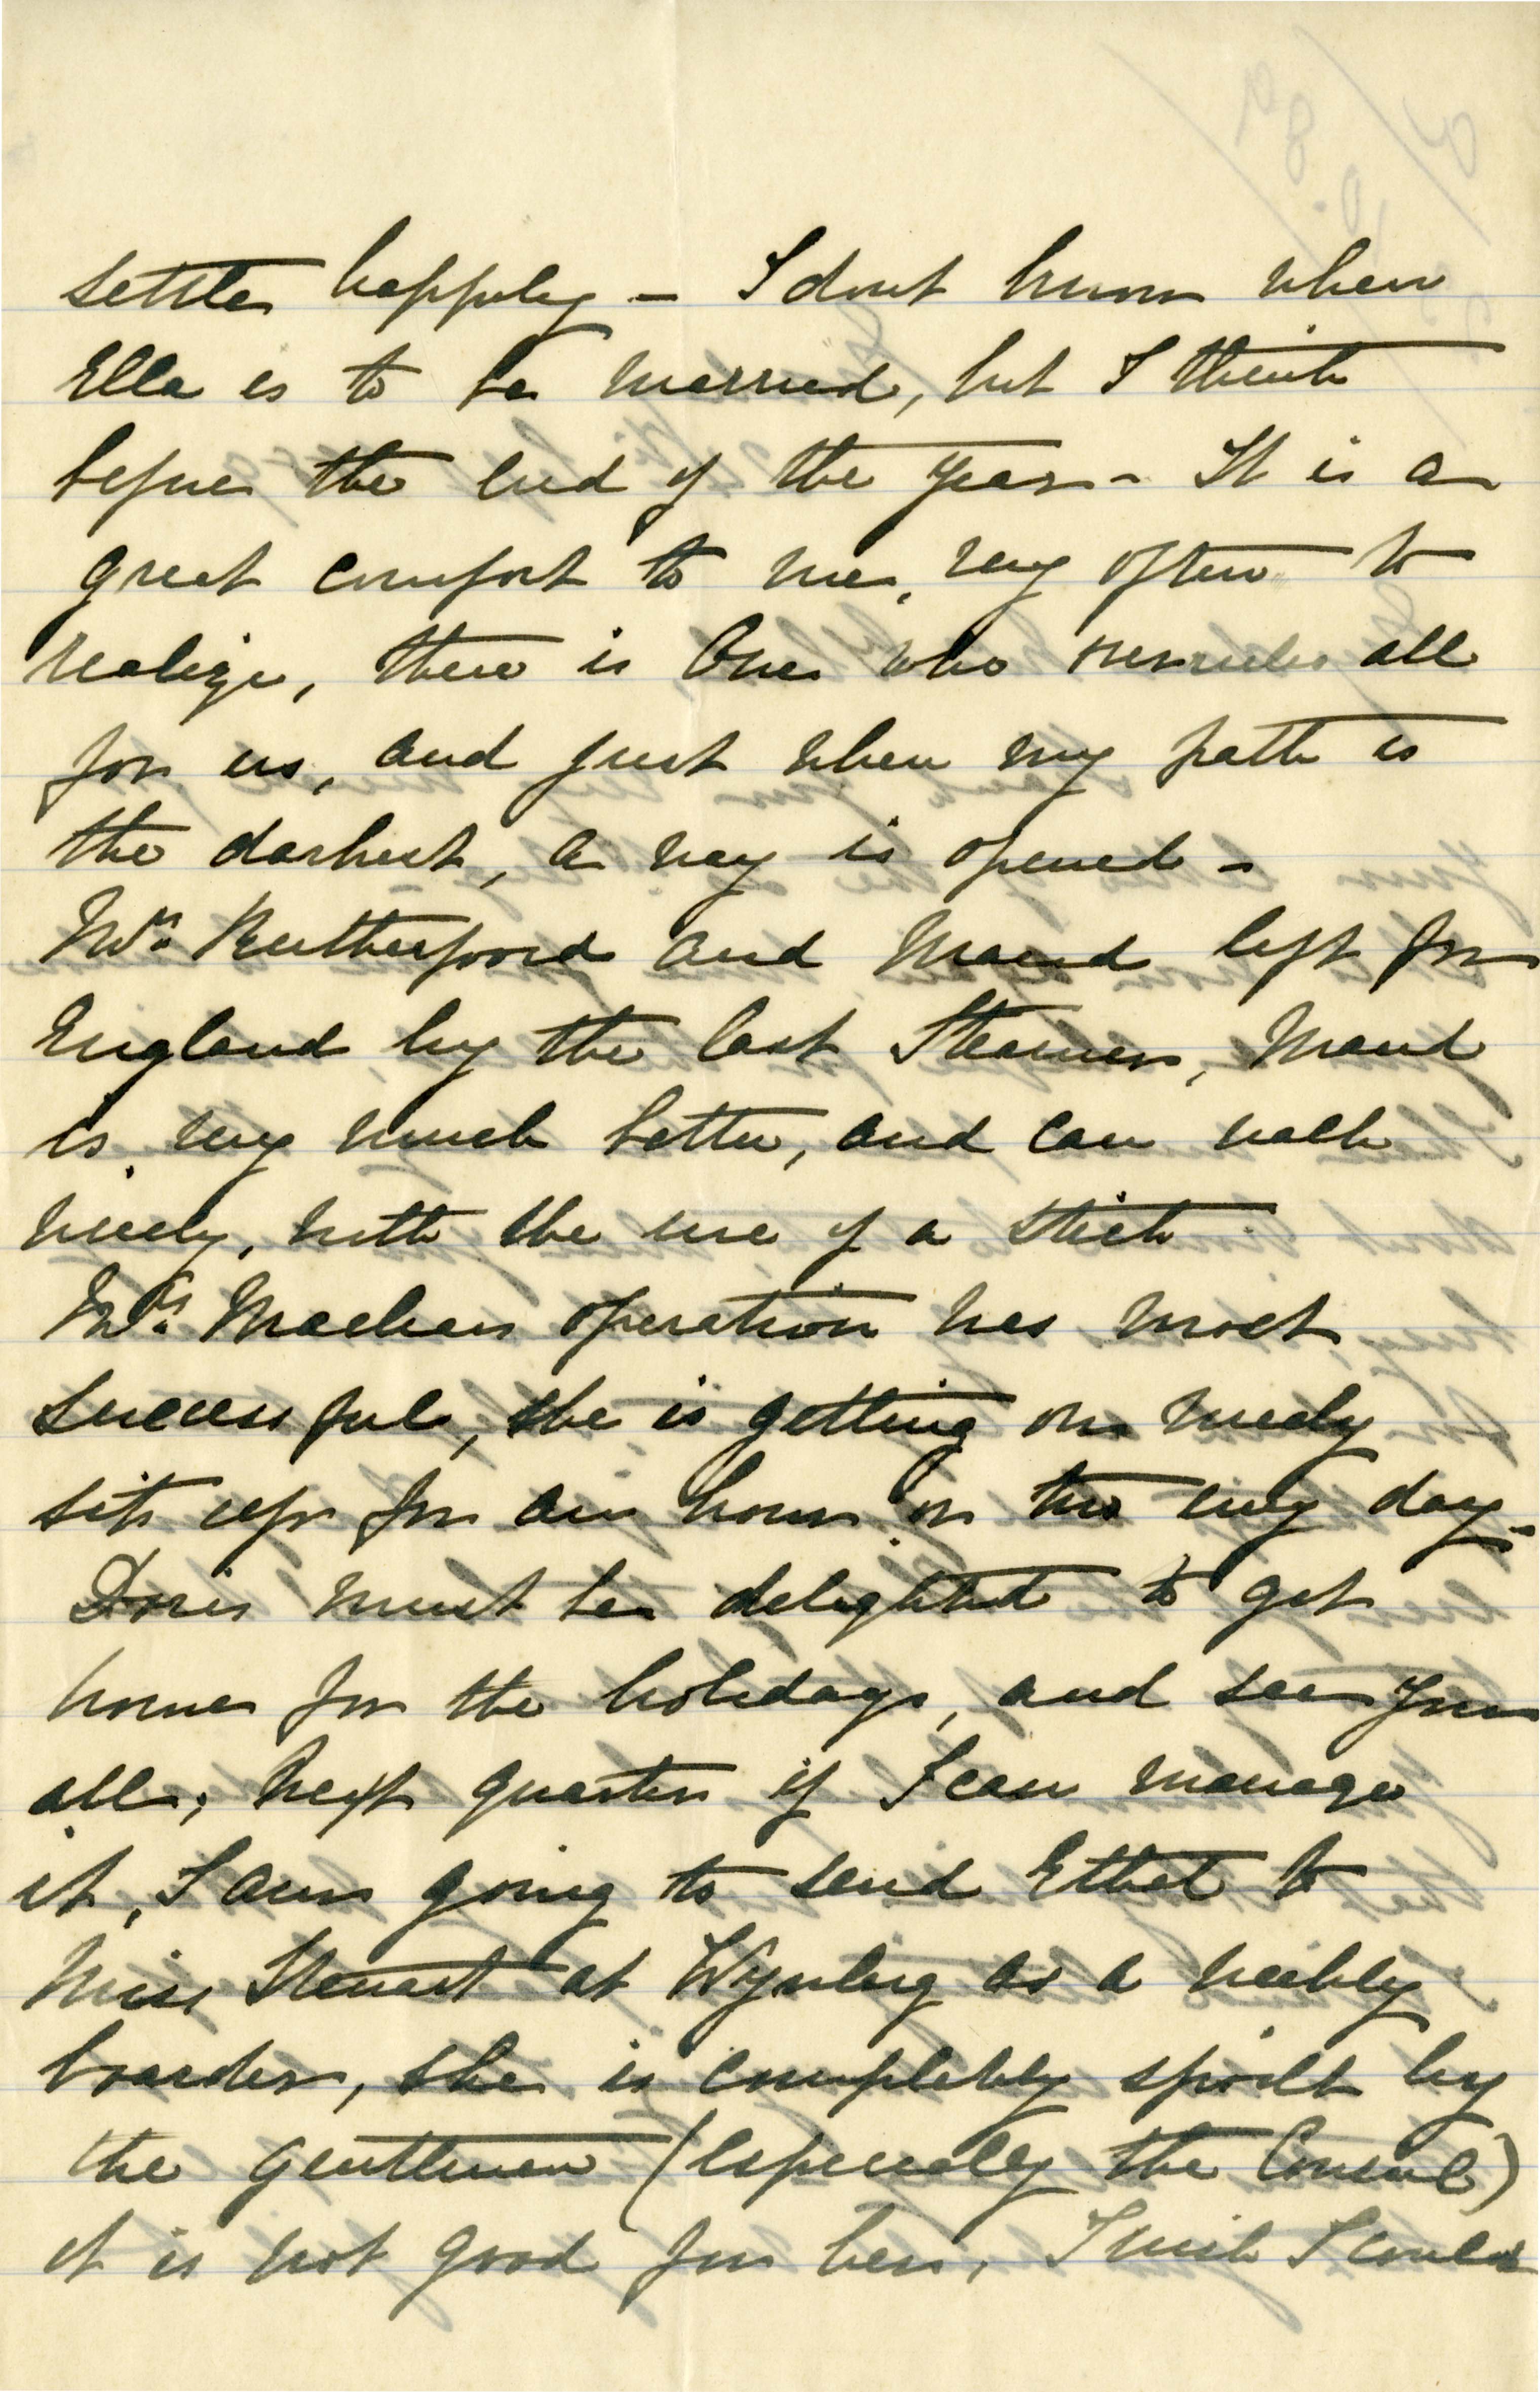 settles happily – I dont know when
Ella is to be married, but I think
before the end of the year – It is a
great comfort to me, very often to
realize, there is One who overrules all
for us, and just when my path is
the darkest, a way is opened –
Mrs. Rutherfoord and Maud left for
England by the last Steamer, Maud
is very much better, and can walk
nicely, with the use of a stick
Mrs. operation was most
successful, she is getting on nicely
sits up for an hour or two every day –
Doris must be delighted to get
home for the holidays, and see you
all; next quarter if I can manage
it, I am going to send Ethel to
Miss Stewart at Wynberg as a weekly
boarder, she is completely spoilt by
the gentlemen (especially the Consul)
it is not good for her, I wish I could